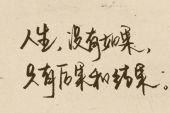 人生,没有如果,
只有后果和结果;